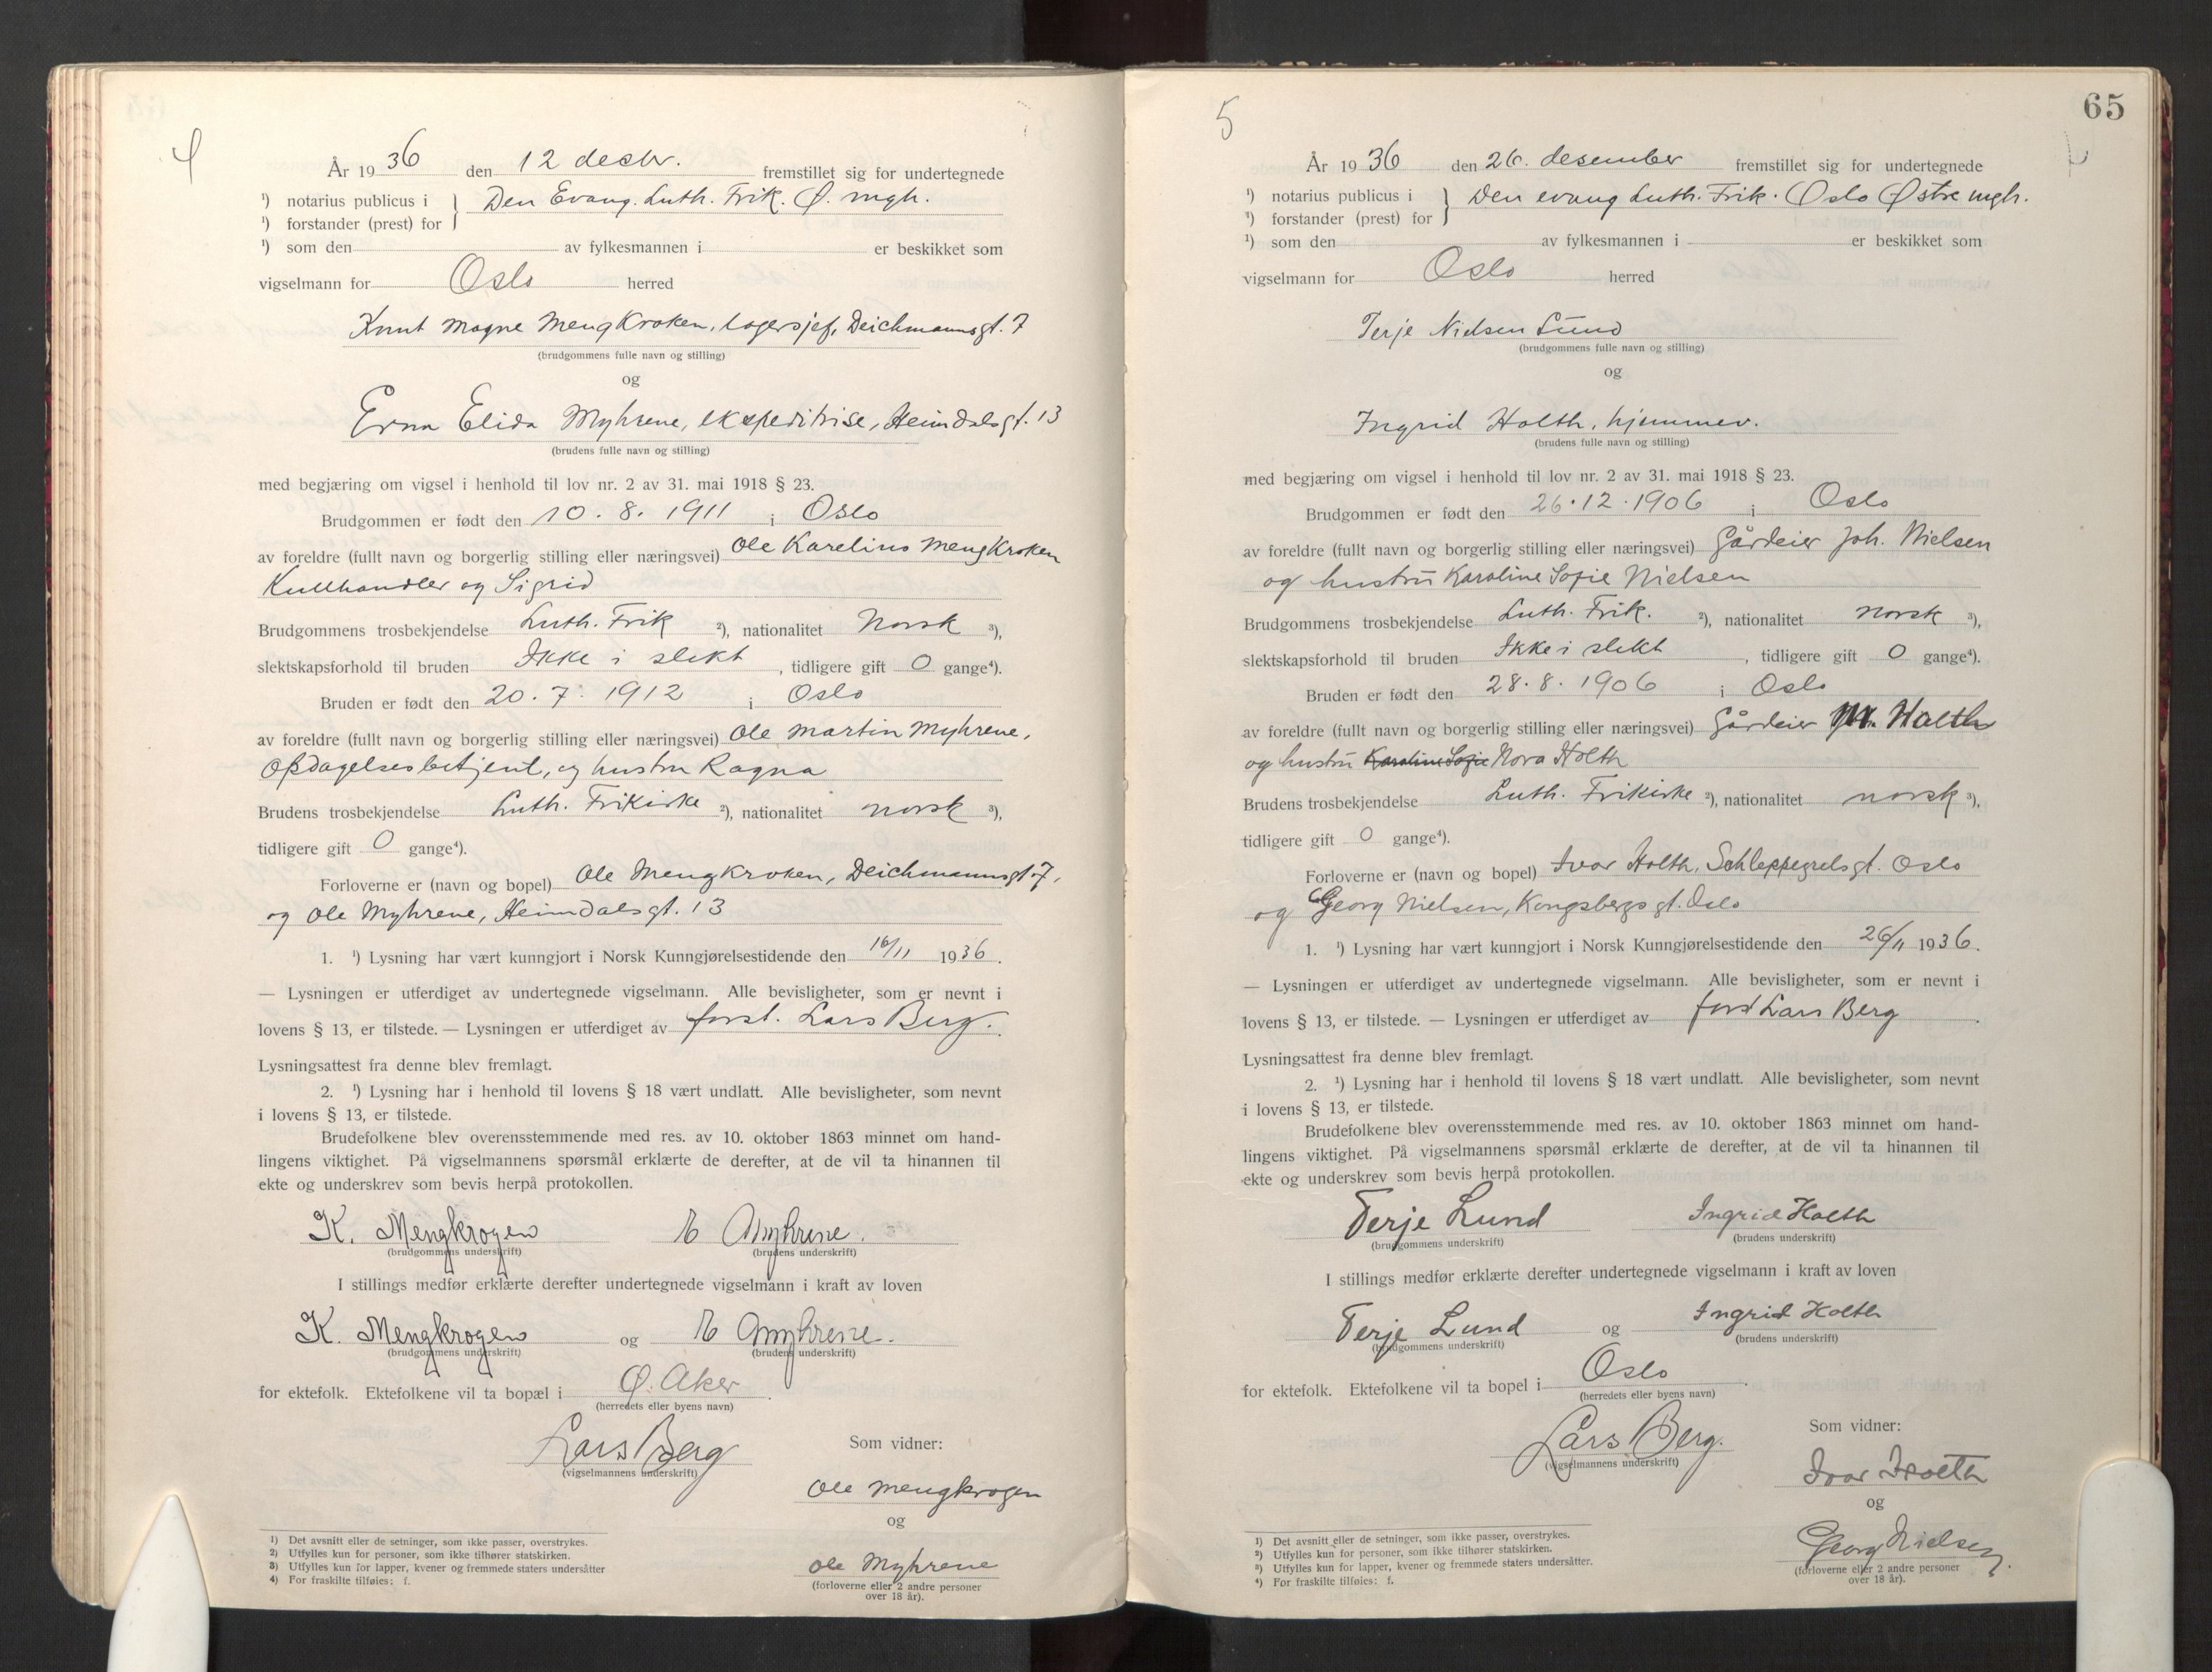 4
År 1936 den 12 desbr. fremstillet sig for undertegnede
¹) notarius publicus i } Den Evang. Luth. Frik. Ø. mgh.
¹) forstander (prest) for
¹) som den av fylkesmannen i er beskikket som
vigselmann for Oslo herred
Knut Magne Mengkroken, lagersjef, Deichmannsgt. 7
(brudgommens fulle navn og stilling)
og
Erna Elida Myhrene, ekspeditrise, Heimdalsgt. 13
(brudens fulle navn og stilling)
med begjæring om vigsel i henhold til lov nr. 2 av 31. mai 1918 § 23.
Brudgommen er født den 10. 8. 1911 i Oslo
av foreldre (fullt navn og borgerlig stilling eller næringsvei) Ole Karelius Mengkroken
Kullhandler og Sigrid
Brudgommens trosbekjendelse Luth. Frik ²), nationalitet Norsk ³),
slektskapsforhold til bruden Ikke i slekt, tidligere gift 0 gange⁴).
Bruden er født den 20. 7. 1912 i Oslo
av foreldre (fullt navn og borgerlig stilling eller næringsvei) Ole Martin Myhrene,
Opdagelsesbetjent, og hustru Ragna
Brudens trosbekjendelse Luth. Frikirke ²), nationalitet norsk ³),
tidligere gift 0 gange⁴).
Forloverne er (navn og bopel) Ole Mengkroken, Deichmannsgt. 7,
og Ole Myhrene, Heimdalsgt. 13
1. ¹) Lysning har vært kunngjort i Norsk Kunngjørelsestidende den 16/11 1936.
— Lysningen er utferdiget av undertegnede vigselmann. Alle bevisligheter, som er nevnt i
lovens § 13, er tilstede. — Lysningen er utferdiget av forst. Lars Berg.
Lysningsattest fra denne blev fremlagt.
2. ¹) Lysning har i henhold til lovens § 18 vært undlatt. Alle bevisligheter, som nevnt
i lovens § 13, er tilstede.
Brudefolkene blev overensstemmende med res. av 10. oktober 1863 minnet om hand-
lingens viktighet. På vigselmannens spørsmål erklærte de derefter, at de vil ta hinannen til
ekte og underskrev som bevis herpå protokollen.
K. Mengkrogen E Myhrene.
(brudgommens underskrift) (brudens underskrift)
I stillings medfør erklærte derefter undertegnede vigselmann i kraft av loven
K. Mengkrogen og E Myhrene.
(brudgommens underskrift) (brudens underskrift)
for ektefolk. Ektefolkene vil ta bopæl i Ø. Aker.
(herredets eller byens navn)
Lars Berg
(vigselmannens underskrift)
Som vidner:
Ole Mengkrogen
og
Ole Myhrene
(forloverne eller 2 andre personer
over 18 år).
¹) Det avsnitt eller de setninger, som ikke passer, overstrykes.
²) Utfylles kun for personer, som ikke tilhører statskirken.
³) Utfylles kun for lapper, kvener og fremmede staters undersåtter
⁴) For fraskilte tilføies: f.
65
5
År 1936 den 26. desember fremstillet sig for undertegnede
¹) notarius publicus i } Den evang Luth. Frik. Oslo Østre mgh.
¹) forstander (prest) for
¹) som den av fylkesmannen i er beskikket som
vigselmann for Oslo herred
Terje Nielsen Lund
(brudgommens fulle navn og stilling)
og
Ingrid Holth, hjemmev.
(brudens fulle navn og stilling)
med begjæring om vigsel i henhold til lov nr. 2 av 31. mai 1918 § 23.
Brudgommen er født den 26.12.1906 i Oslo
av foreldre (fullt navn og borgerlig stilling eller næringsvei) Gårdeier Joh. Nielsen
og hustru Karoline Sofie Nielsen
Brudgommens trosbekjendelse Luth. Frik. ²), nationalitet norsk ³),
slektskapsforhold til bruden Ikke i slekt, tidligere gift 0 gange⁴).
Bruden er født den 28.8.1906 i Oslo
av foreldre (fullt navn og borgerlig stilling eller næringsvei) Gårdeier Holth
og hustru Karoline Sofie Nora Holth
Brudens trosbekjendelse Luth. Frikirke ²), nationalitet norsk ³),
tidligere gift 0 gange⁴).
Forloverne er (navn og bopel) Ivar Holth, Schleppegrelsgt. Oslo
og Georg Nielsen, Kongsbergsgt. Oslo
1. ¹) Lysning har vært kunngjort i Norsk Kunngjørelsestidende den 26/11 1936.
— Lysningen er utferdiget av undertegnede vigselmann. Alle bevisligheter, som er nevnt i
lovens § 13, er tilstede. — Lysningen er utferdiget av forst Lars Berg.
Lysningsattest fra denne blev fremlagt.
2. ¹) Lysning har i henhold til lovens § 18 vært undlatt. Alle bevisligheter, som nevnt
i lovens § 13, er tilstede.
Brudefolkene blev overensstemmende med res. av 10. oktober 1863 minnet om hand-
lingens viktighet. På vigselmannens spørsmål erklærte de derefter, at de vil ta hinannen til
ekte og underskrev som bevis herpå protokollen.
Terje Lund Ingrid Holth
(brudgommens underskrift) (brudens underskrift)
I stillings medfør erklærte derefter undertegnede vigselmann i kraft av loven
Terje Lund og Ingrid Holth
(brudgommens underskrift) (brudens underskrift)
for ektefolk. Ektefolkene vil ta bopel i Oslo.
(herredets eller byens navn)
Lars Berg.
(vigselmannens underskrift)
Som vidner:
Ivar Holth
og
Georg Nielsen.
(forloverne eller 2 andre personer
over 18 år).
¹) Det avsnitt eller de setninger, som ikke passer, overstrykes.
²) Utfylles kun for personer, som ikke tilhører statskirken.
³) Utfylles kun for lapper, kvener og fremmede staters undersåtter.
⁴) For fraskilte tilføies: f.